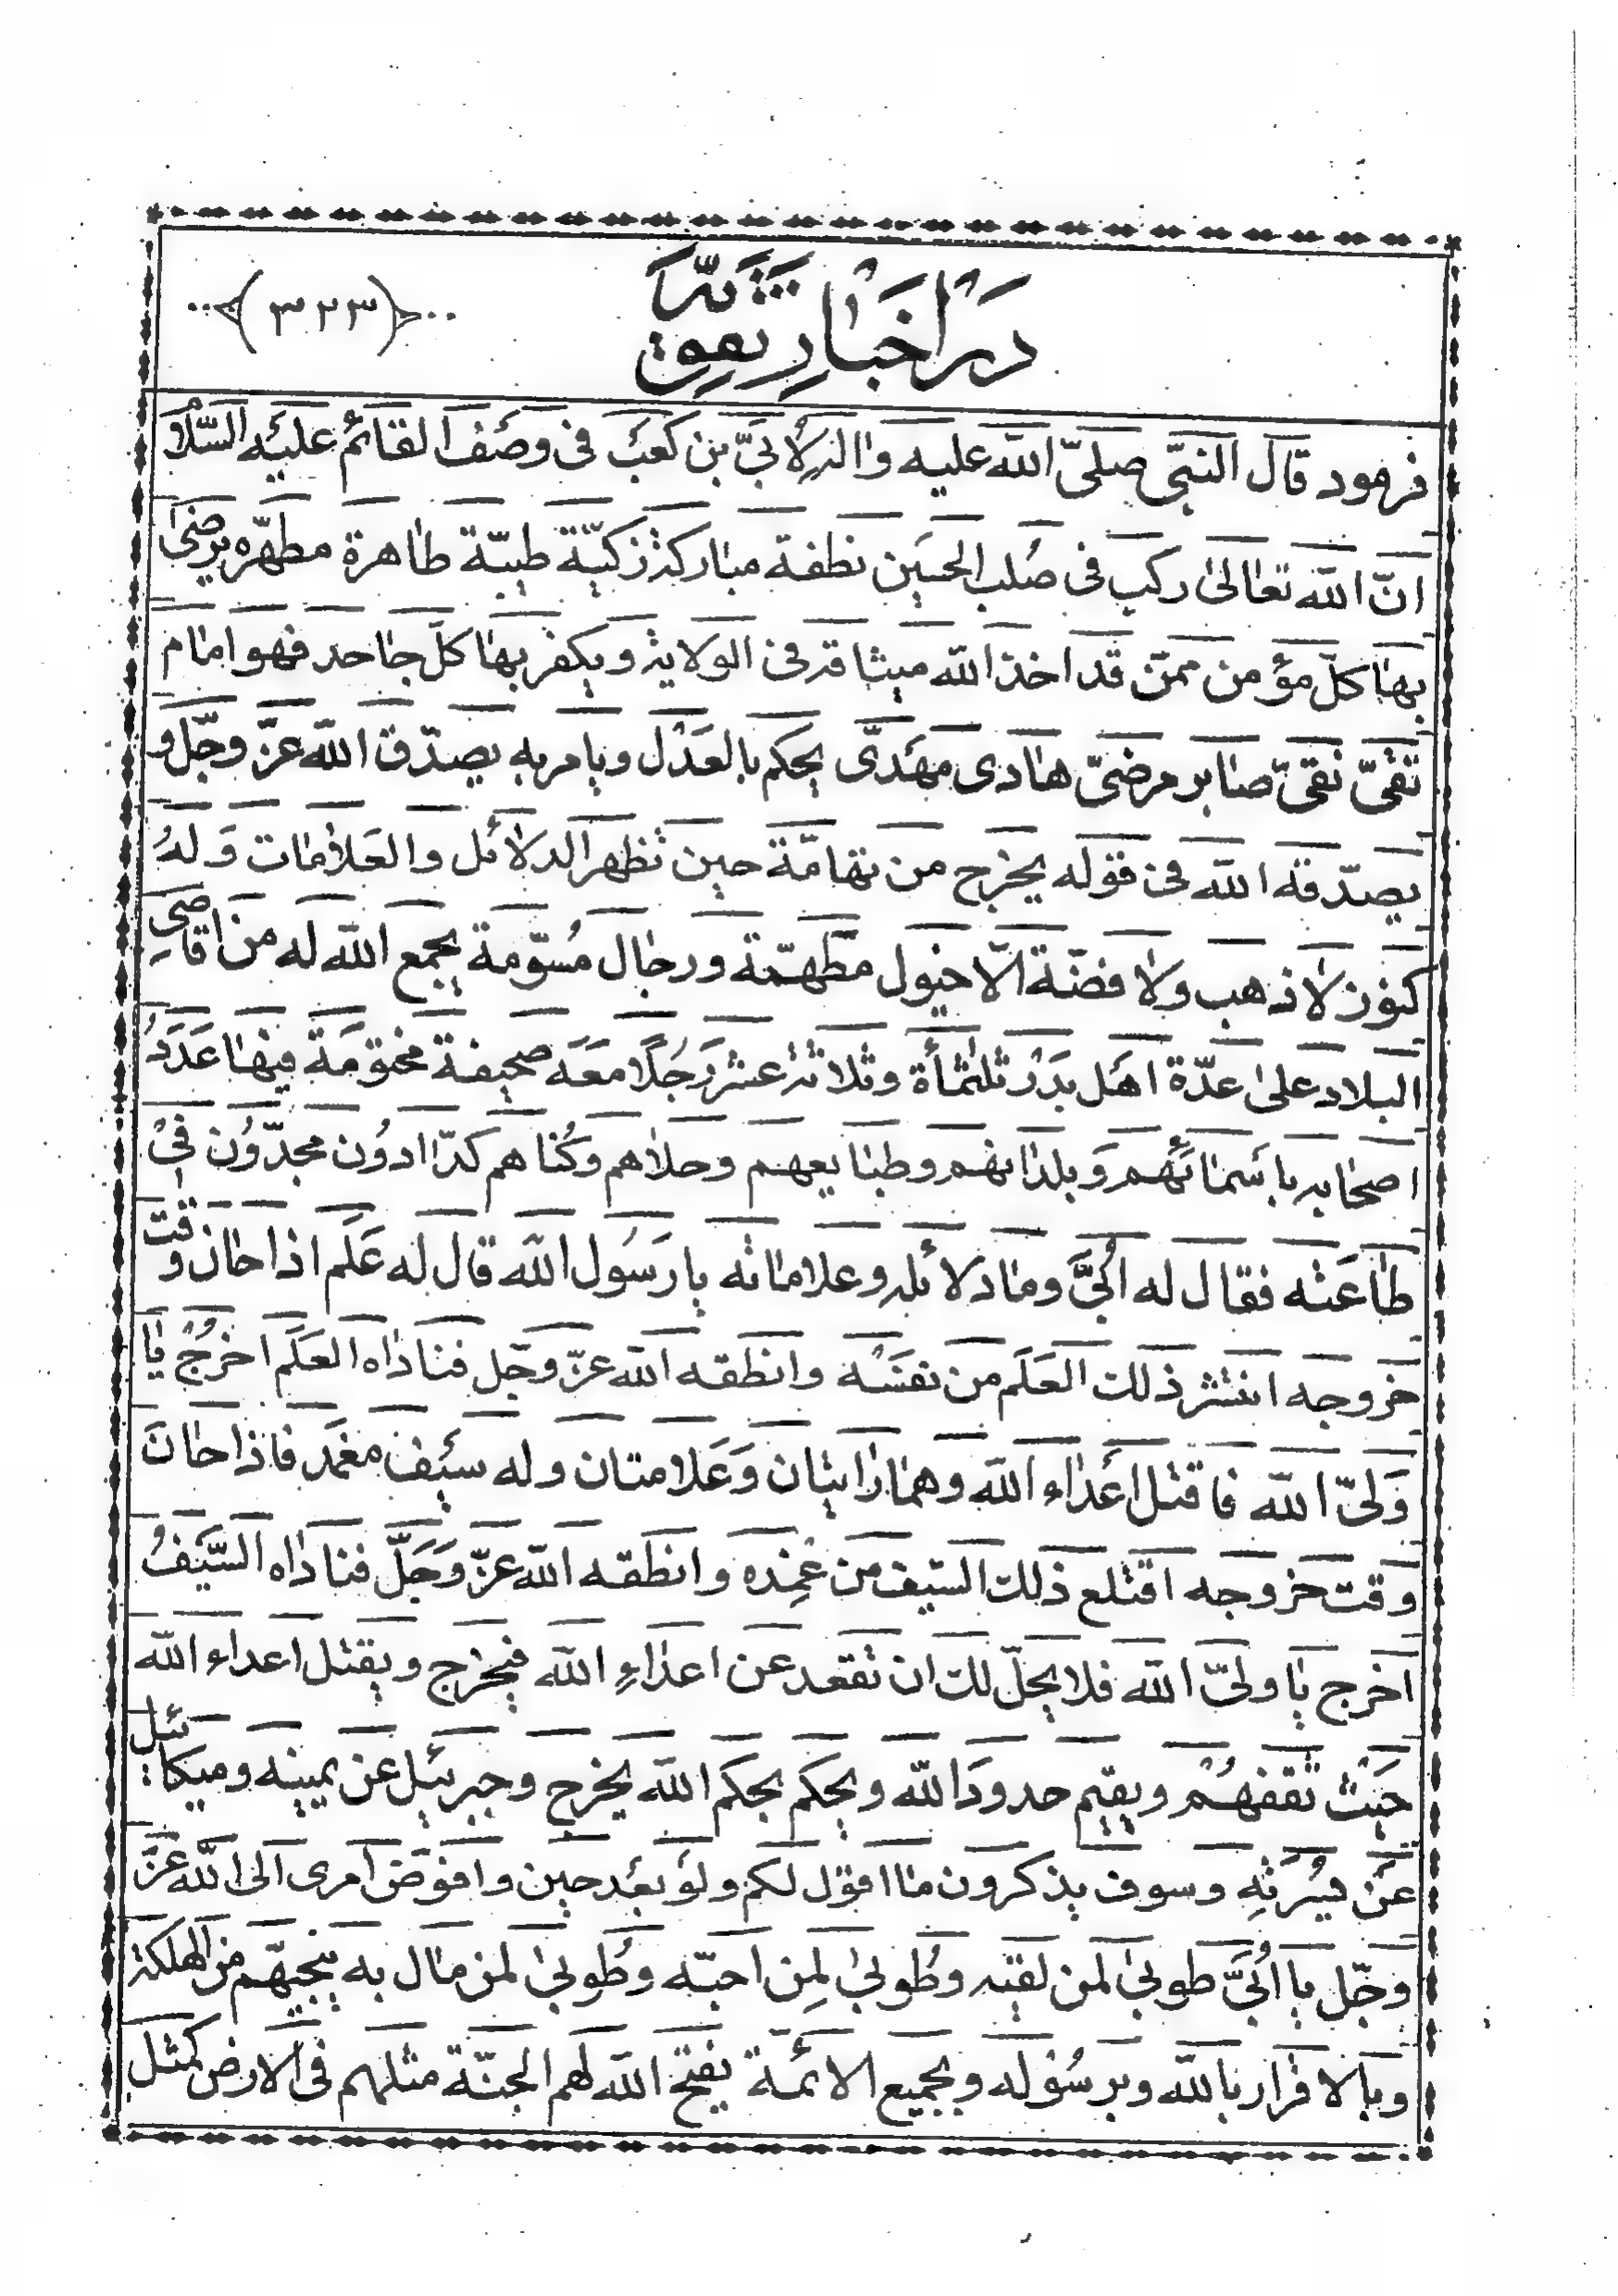 در اخبار نبویّه
﴿٣٢٣﴾
فرمود قال النبّی صلیّ اللّه علیه واله لأبیّ بن کعب فی وصف القائم علیه السّلام
انّ اللّه تعالیٰ رکب فی صُلب الحسین نطفة مبارکة زکیّة طیبّة طاهرة مطهّره یرضیٰ
بها کلّ مؤمن ممّن قد اخذ اللّه میثاقه فی الولایة ویکفر بها کلّ جاحد فهو امام
تقیّ نقیّ صابر مرضیّ هادی مهدیّ یحکم بالعدل ویامر به یصدّق اللّه عزّ وجلّ و
یصدّقه اللّه فی قوله یخرج من تهامّة حین تظهر الدلائل والعلامات وله
کنوز لا ذهب ولا فضّة الّا خیول مطهّمة ورجال مُسوّمة یجمع اللّه له من اقاصی
البلاد علی عدّة اهل بدر ثلثمأة وثلاثة عشر رجلًا معه صحیفة مختومة فیها عدد
اصحابه باسمائهم وبلدانهم وطبایعهم وحلاهم وکُناهم کدّادوُن مجدّوُن فی
طاعته فقال له اُبیّ وما دلائله وعلاماته یا رسول اللّه قال له عَلَم اذا حان وقت
خروجه انتشر ذلک العَلَم من نفسه وانطقه اللّه عزّ وجّل فناداه العَلَم اخرُج یا
وَلیّ اللّه فاقتل اعداء اللّه وهما رایتان وعَلامتان وله سیف مغمد فاذا حان
وقت خروجه اقتلع ذلک السّیف من غِمده وانطقه اللّه عزّ وَجَلّ فناداه السّیفُ
اخرج یا ولیّ اللّه فلا یحلّ لک ان تقعد عن اعداءِ اللّه فیخرج ویقتل اعداء اللّه
حیث ثقفهُم ویقیم حدودَ اللّه ویحکم بحکم اللّه یخرج وجبرئیل عن یمینه ومیکائیل
عن یسرتِه وسوف یذکرون ما اقول لکم ولو بعد حین وافوض امری الی اللّه عزّ
وجّل یا اُبیّ طوبیٰ لمن لقیه وطُوبیٰ لِمن احبّه وطُوبیٰ لمن قال به ینجیهّم من الهلکة
وبالاقرار باللّه وبرسُوله وبجمیع الائمة یفتح اللّه لهم الجنّة مثلهم فی الارض کمثل